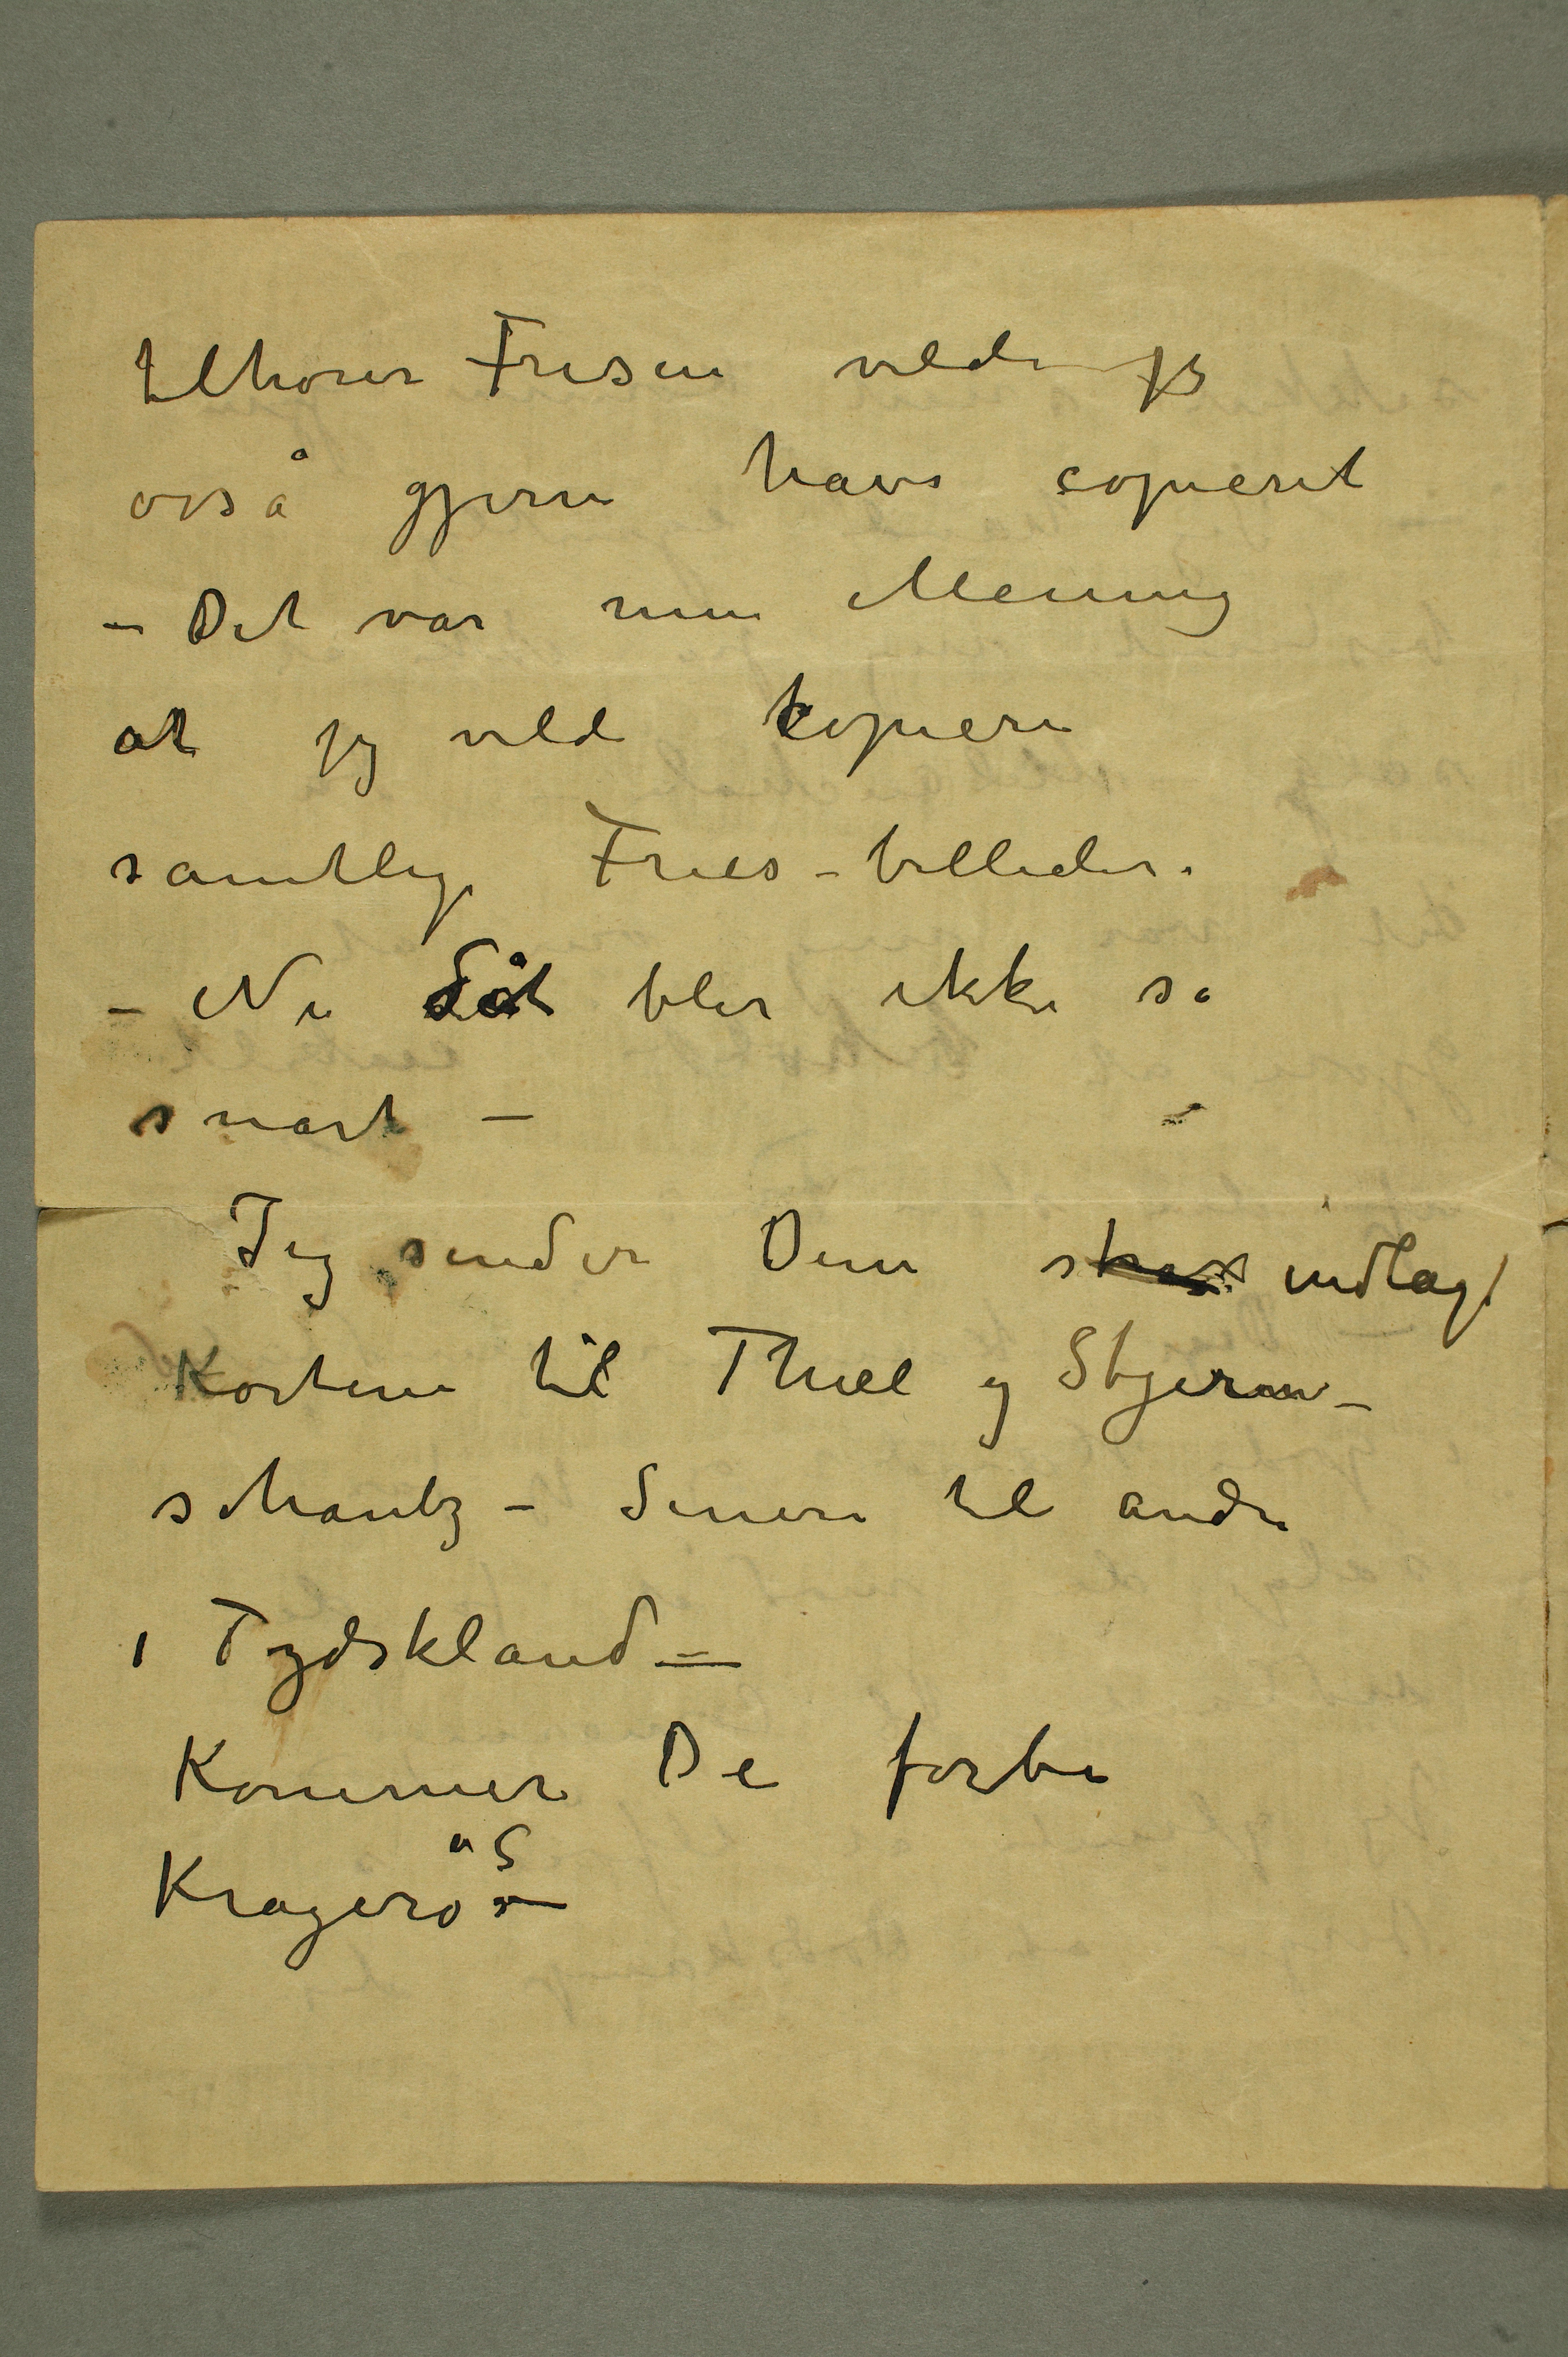 tilhører Frisen vilde jeg
osså gjerne have copieret
– Det var min Mening
at jeg vilde kopiere
samtlige Fries-billeder.
– Nu det blir ikke så
snart –
Jeg sender Dem strax indlagt
Kortene til Thiel og Stjern-
schantz – Senere til andre
i Tydskland –
Kommer De forbi
Kragerø S